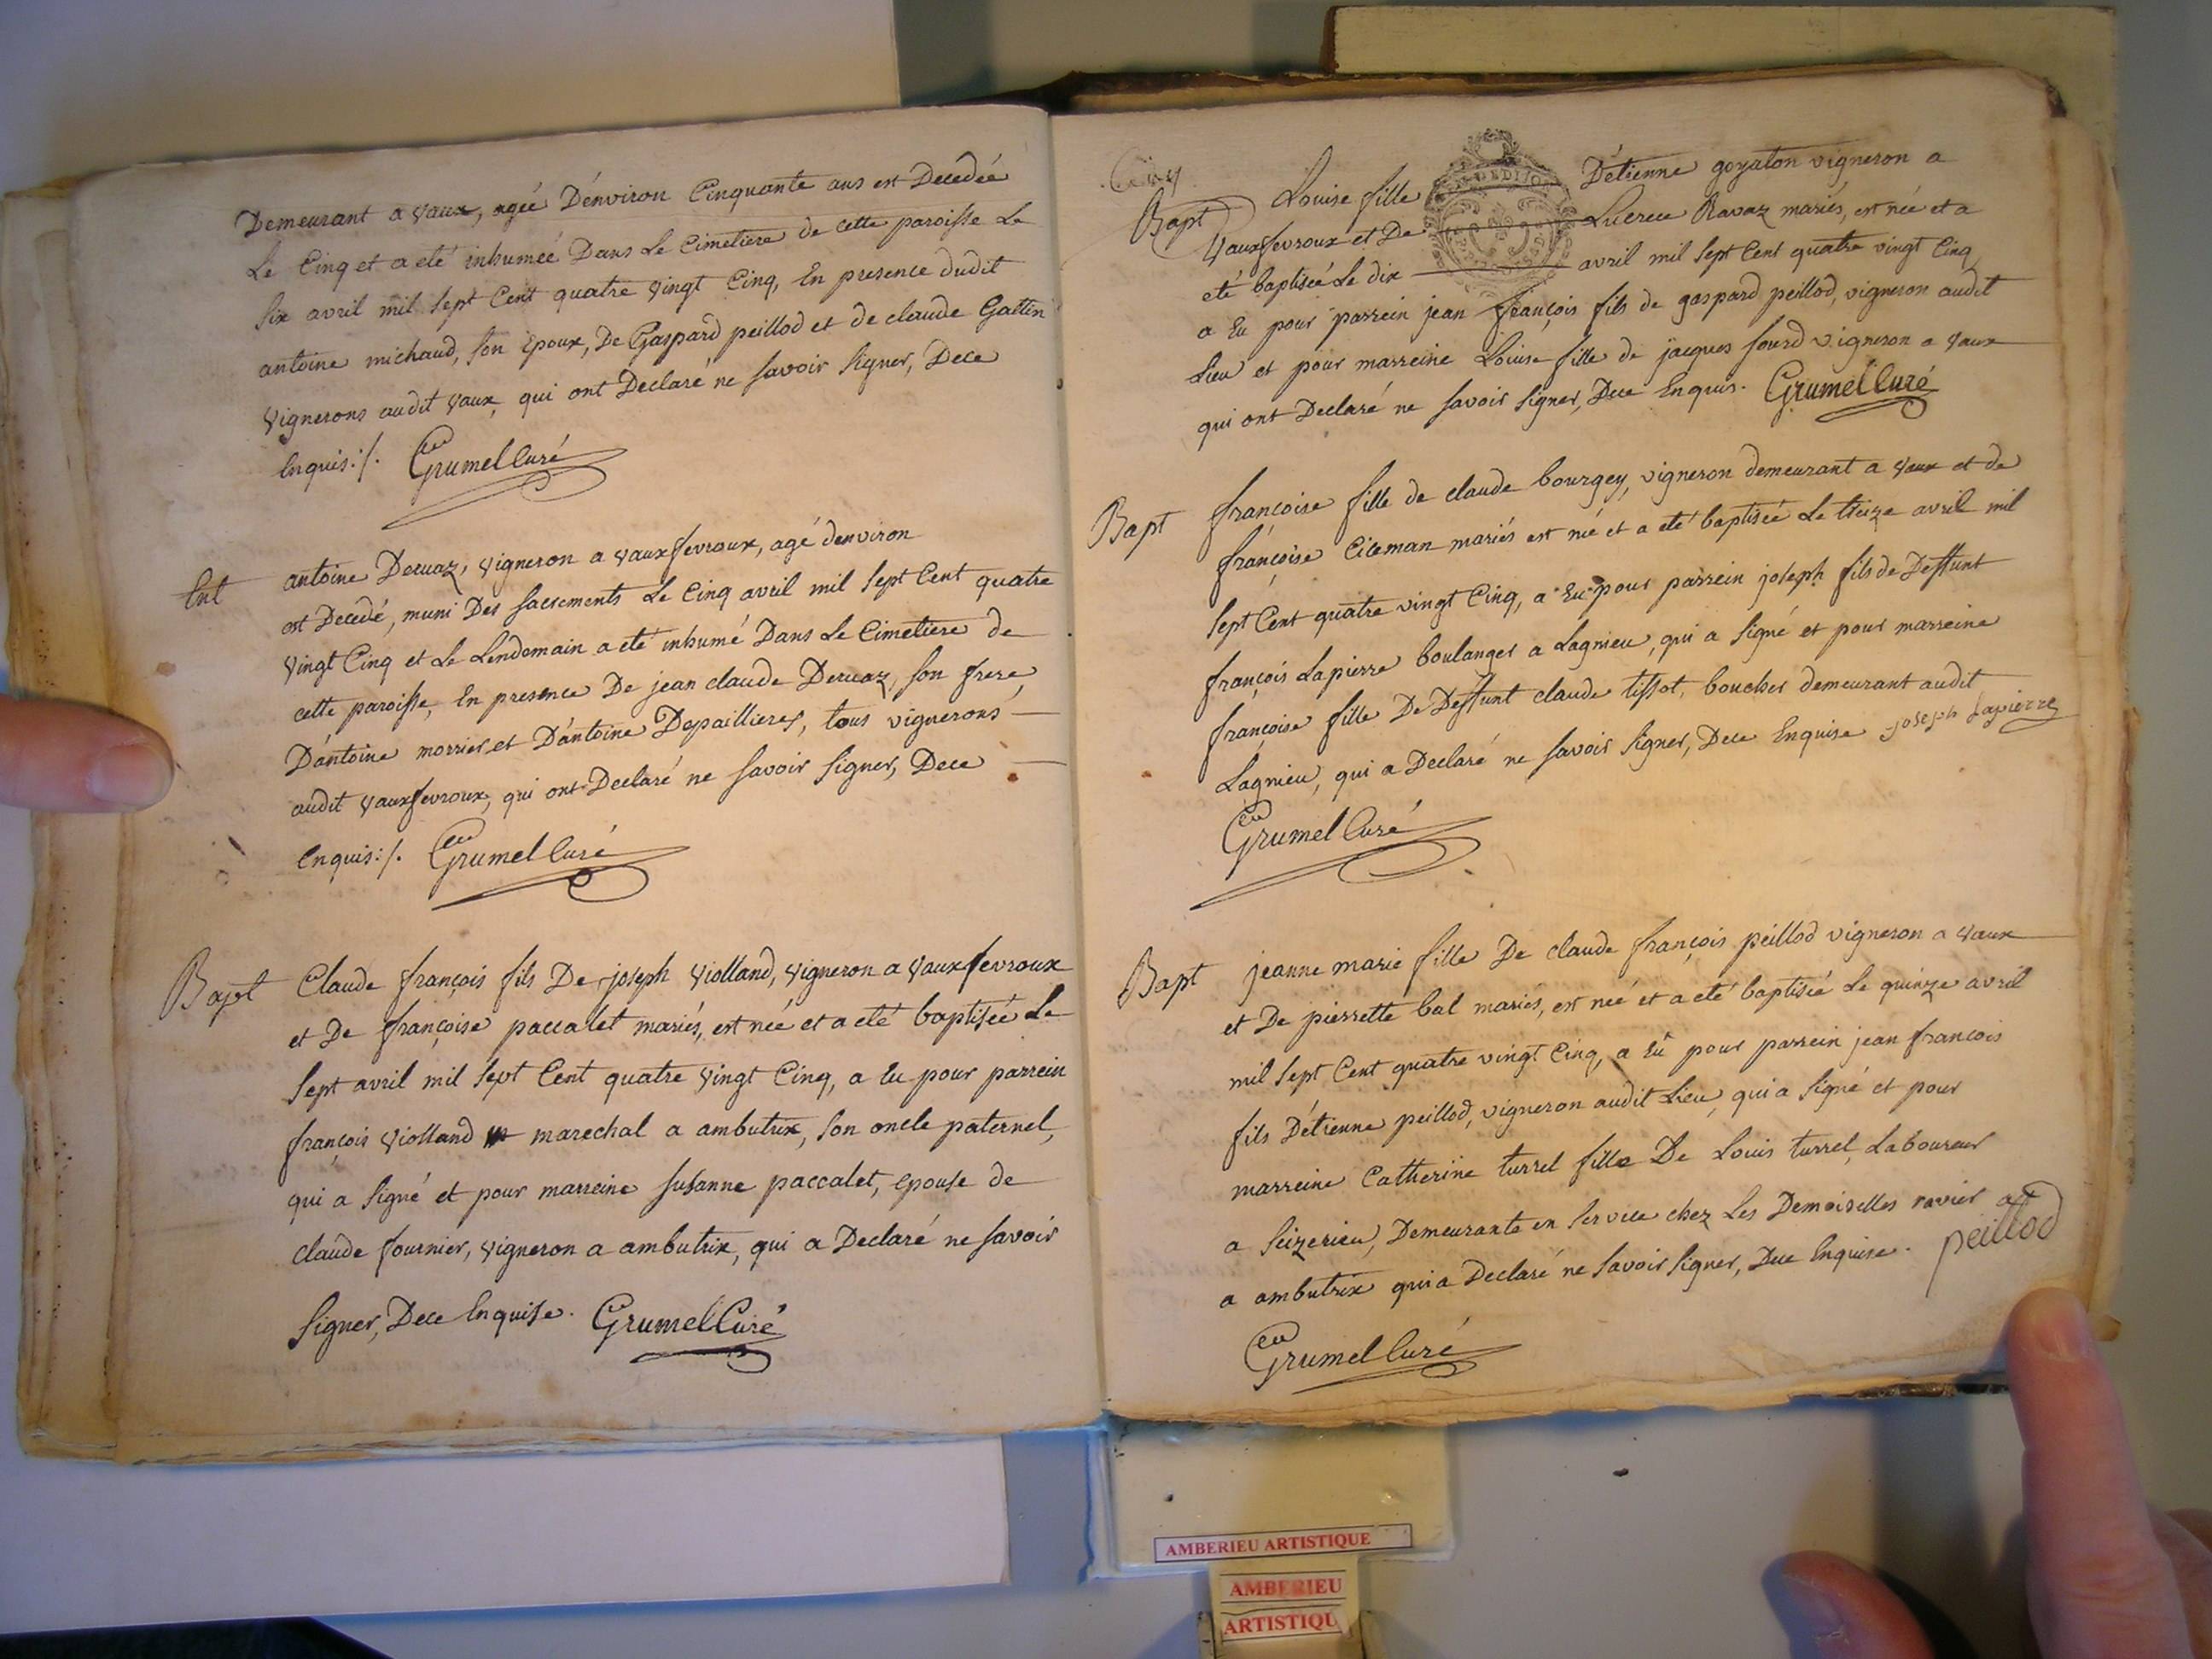 Demeurant a vaux, agée D'environ Cinquante ans est Decedée
Le Cinq et a eté inhumée Dans Le Cimetiere de cette paroisse Le
six avril mil sept Cent quatre vingt Cinq, En presence dudit
antoine michaud, son Epoux, De Gaspard peillod et de claude Gallin
vignerons audit vaux, qui ont Declaré ne savoir signer, Dece
Enquis:/. Grumel Curé
Ent
antoine Dervaz, vigneron a vauxfevroux, agé denviron
est Decedé, muni Des sacrements Le Cinq avril mil sept Cent quatre
vingt Cinq et Le Lendemain a eté inhumé Dans Le Cimetiere de
cette paroisse, En presence De jean claude Dervaz, son frere,
D'antoine morrier et D'antoine Depaillieres, tous vignerons
audit vauxfevroux, qui ont Declaré ne savoir signer, Dece
Enquis:/. Grumel Curé
Bapt
Claude françois fils De joseph violland, vigneron a vauxfevroux
et De françoise paccalet mariés, est née et a eté baptisée Le
sept avril mil sept Cent quatre vingt Cinq, a Eu pour parrein
françois violland marechal a ambutrix, son oncle paternel,
qui a signé et pour marreine susanne paccalet, epouse de
claude fournier, vigneron a ambutrix, qui a Declaré ne savoir
signer, Dece Enquise. Grumel Curé
Cinq
Bapt
Louise fille D'etienne goyaton vigneron a
vauxfevroux et De Lucrece Ravaz mariés, est née et a
eté baptisée Le dix avril mil sept Cent quatre vingt Cinq
a Eu pour parrein jean françois fils de gaspard peillod, vigneron audit
Lieu et pour marreine Louise fille de jacques sourd vigneron a vaux
qui ont Declaré ne savoir signer, Dece Enquis. Grumel Curé
Bapt
françoise fille de claude bourgey, vigneron demeurant a vaux et de
françoise Liceman mariés est née et a eté baptisée Le treize avril mil
sept Cent quatre vingt Cinq, a Eu pour parrein joseph fils de Deffunt
françois Lapierre boulanger a Lagnieu, qui a signé et pour marreine
françoise fille De Deffunt claude tissot, boucher demeurant audit
Lagnieu, qui a Declaré ne savoir signer, Dece Enquise joseph Lapierre
Grumel Curé
Bapt
jeanne marie fille De claude françois peillod vigneron a vaux
et De pierrette bal mariés, est née et a eté baptisée Le quinze avril
mil sept Cent quatre vingt Cinq, a Eu pour parrein jean francois
fils D'etienne peillod, vigneron audit Lieu, qui a signé et pour
marreine Catherine turrel fille De Louis turrel, Laboureur
a seizerieu, Demeurante en service chez Les Demoiselles ravier
a ambutrix qui a Declaré ne savoir signer, Dece Enquise. peillod
Grumel Curé
AMBERIEU ARTISTIQUE
AMBERIEU
ARTISTIQU